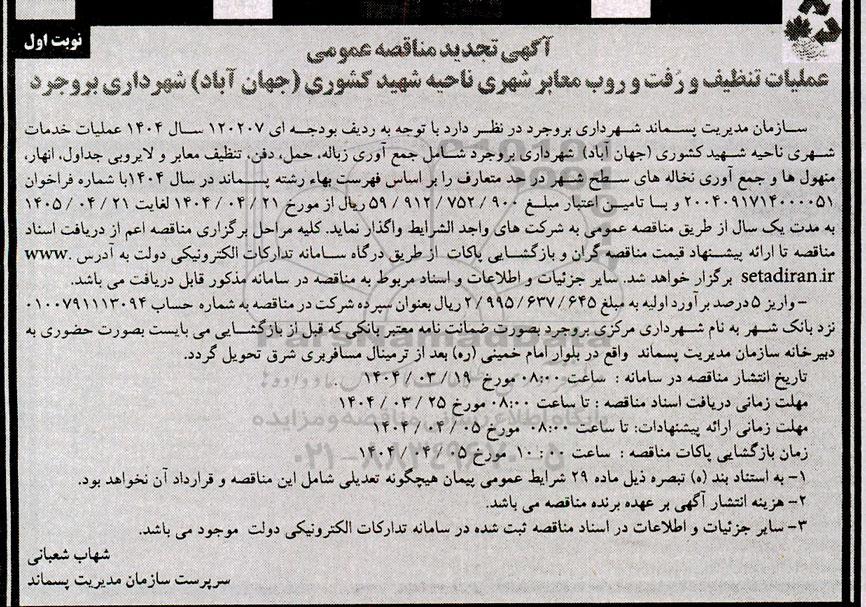 نوبت اول
آگهی تجدید مناقصه عمومی
عملیات تنظیف و رُفت و روب معابر شهری ناحیه شهید کشوری (جهان آباد) شهرداری بروجرد
سـازمان مدیریت پسـماند شـهرداری بروجرد در نظـر دارد با توجه به ردیف بودجـه ای ۱۲۰۲۰۷ سـال ۱۴۰۴ عملیات خدمات
شـهری ناحیه شـهید کشوری (جهان آباد) شهرداری بروجرد شـامل جمع آوری زباله، حمل، دفن، تنظیف معابر و لایروبی جداول، انهار،
منهول ها و جمع آوری نخاله های سـطح شـهر در حد متعارف را بر اساس فهرست بهاء رشته پسـماند در سال ۱۴۰۴با شماره فراخوان
۲۰۰۴۰۹۱۷۱۴۰۰۰۰۵۱ و بـا تامیـن اعتبار مبلـغ ۵۹/۹۱۲/۷۵۲/۹۰۰ ریال از مورخ ۱۴۰۴/۰۴/۲۱ لغایت ۱۴۰۵/۰۴/۲۱
به مدت یک سال از طریق مناقصه عمومی به شرکت های واجد الشرایط واگذار نماید. کلیه مراحل برگزاری مناقصه اعم از دریافت اسناد
مناقصه تا ارائه پیشـنهاد قیمت مناقصه گران و بازگشـایی پاکات از طریق درگاه سـامانه تدارکات الکترونیکی دولت به آدرس www.
setadiran.ir برگزار خواهد شد. سایر جزئیات و اطلاعات و اسناد مربوط به مناقصه در سامانه مذکور قابل دریافت می باشد.
- واریز ۵ درصد بر آورد اولیه به مبلغ ۲/۹۹۵/۶۳۷/۶۴۵ ریال بعنوان سپرده شرکت در مناقصه به شماره حساب ۰۱۰۰۷۹۱۱۱۳۰۹۴
نزد بانک شـهر به نام شـهرداری مرکزی بروجرد بصورت ضمانت نامه معتبر بانکی که قبل از بازگشـایی می بایست بصورت حضوری به
دبیرخانه سازمان مدیریت پسماند واقع در بلوار امام خمینی (ره) بعد از ترمینال مسافربری شرق تحویل گردد.
تاریخ انتشار مناقصه در سامانه : ساعت ۰۸:۰۰ مورخ ۱۴۰۴/۰۳/۱۹
مهلت زمانی دریافت اسناد مناقصه : تا ساعت ۰۸:۰۰ مورخ ۱۴۰۴/۰۳/۲۵
مهلت زمانی ارائه پیشنهادات: تا ساعت ۰۸:۰۰ مورخ ۱۴۰۴/۰۴/۰۵
زمان بازگشایی پاکات مناقصه : ساعت ۱۰:۰۰ مورخ ۱۴۰۴/۰۴/۰۵
۱- به استناد بند (ه) تبصره ذیل ماده ۲۹ شرایط عمومی پیمان هیچگونه تعدیلی شامل این مناقصه و قرارداد آن نخواهد بود.
۲- هزینه انتشار آگهی بر عهده برنده مناقصه می باشد.
۳- سایر جزئیات و اطلاعات در اسناد مناقصه ثبت شده در سامانه تدارکات الکترونیکی دولت موجود می باشد.
شهاب شعبانی
سرپرست سازمان مدیریت پسماند
ParsNamadData
پایگاه اطلاع رسانی مناقصه و مزایده